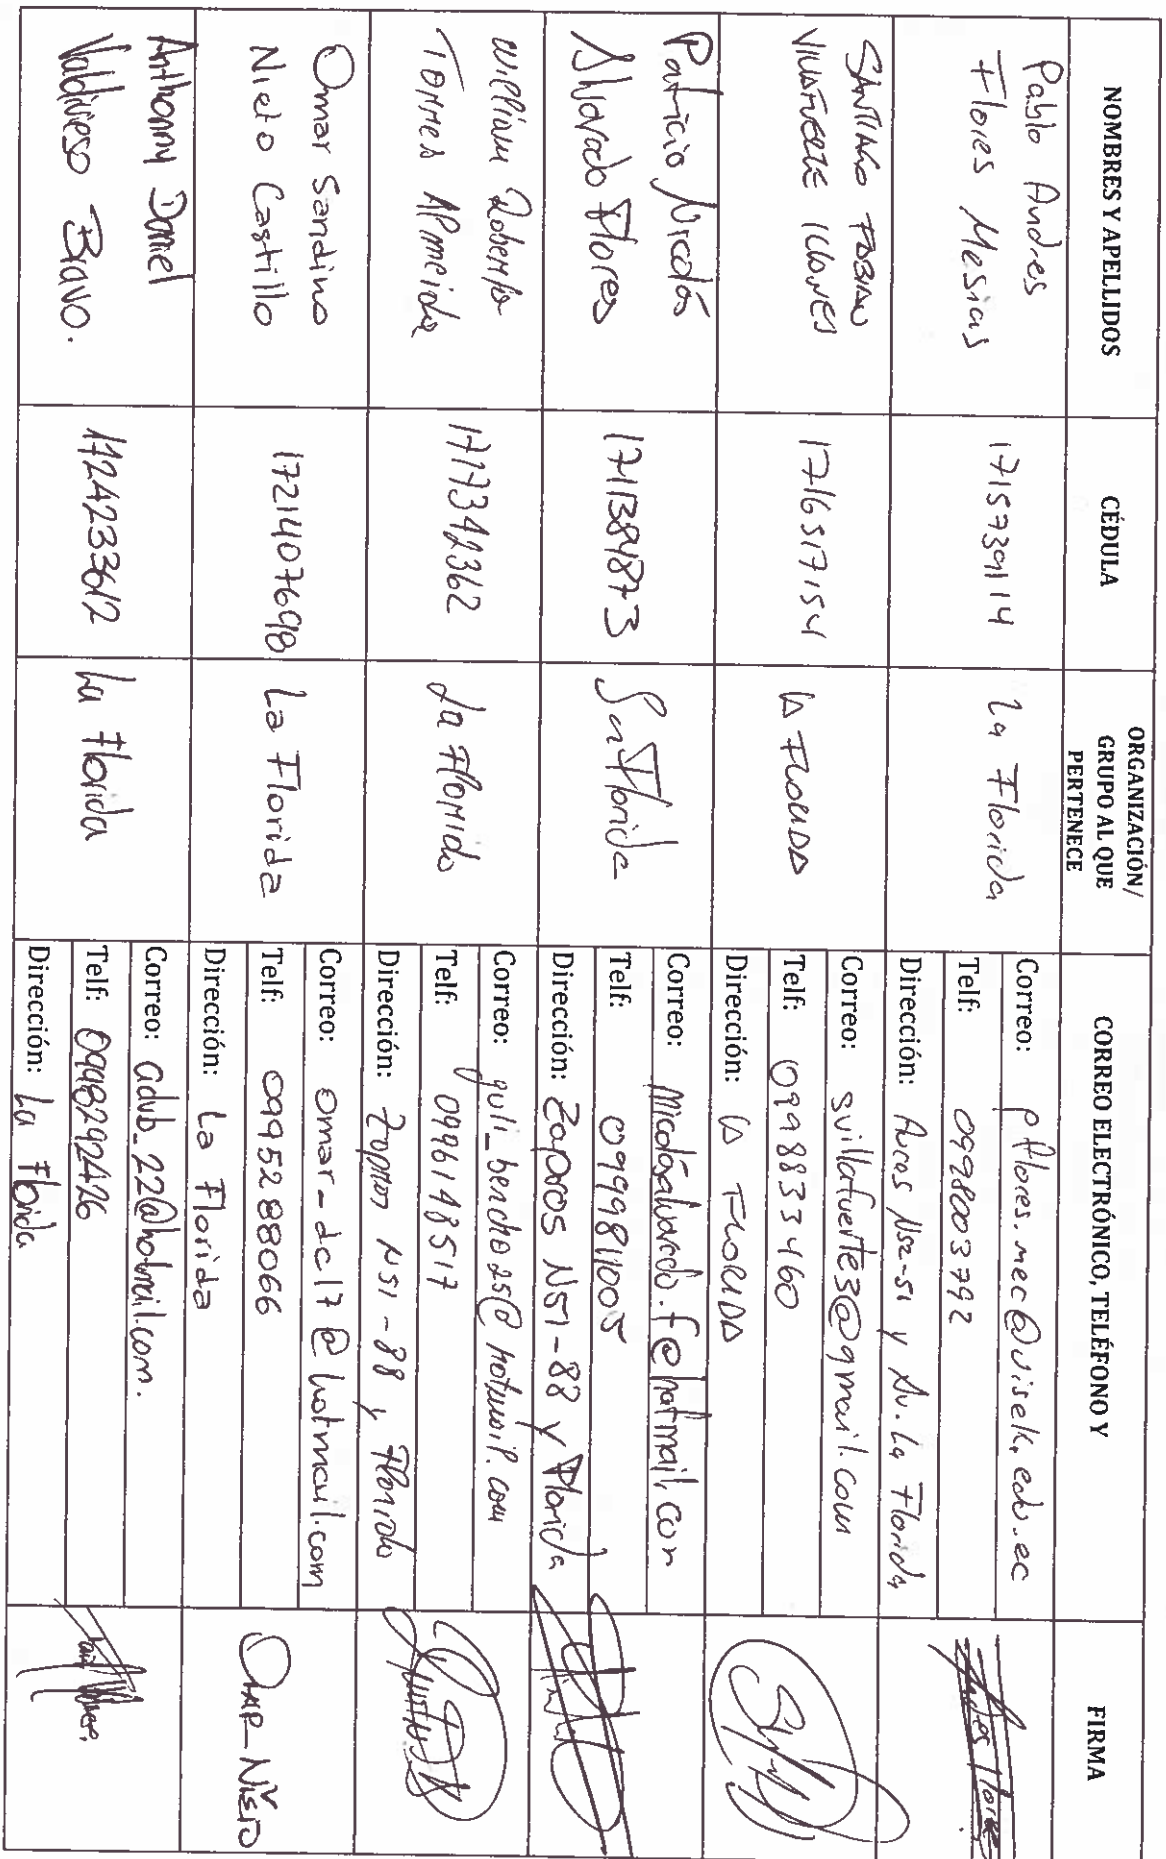 NOMBRES Y APELLIDOS
CÉDULA
ORGANIZACIÓN/
GRUPO AL QUE
PERTENECE
CORREO ELECTRÓNICO, TELÉFONO Y
FIRMA
Pablo Andres
Flores Mesias
1715739114
La Florida
Correo: pflores.mec@uisek.edu.ec
Telf: 0998003792
Dirección: Auras N52-51 y Av. La Florida
SANTIAGO FABIAN
VILLAFUERTE
1716517154
LA FLORIDA
Correo: svillafuerte3@gmail.com
Telf: 0998833460
Dirección: LA FLORIDA
Patricio Nicolás
Alvarado Flores
1711384873
La Florida
Correo: Nicolásalvarado.f@hotmail.com
Telf: 0999811005
Dirección: Zaparos N51-88 y Florida
William Roberto
Torres Almeida
1717342362
La Florida
Correo: guli_bencho25@hotmail.com
Telf: 0996148517
Dirección: Zaparos N51-88 y Florida
Omar Sandino
Nieto Castillo
1721407698
La Florida
Correo: omar-dc17@hotmail.com
Telf: 0995288066
Dirección: La Florida
OMAR NIETO
Anthonny Daniel
Valdivieso Bravo.
1724233612
La Florida
Correo: advb_22@hotmail.com.
Telf: 0998292426
Dirección: La Florida